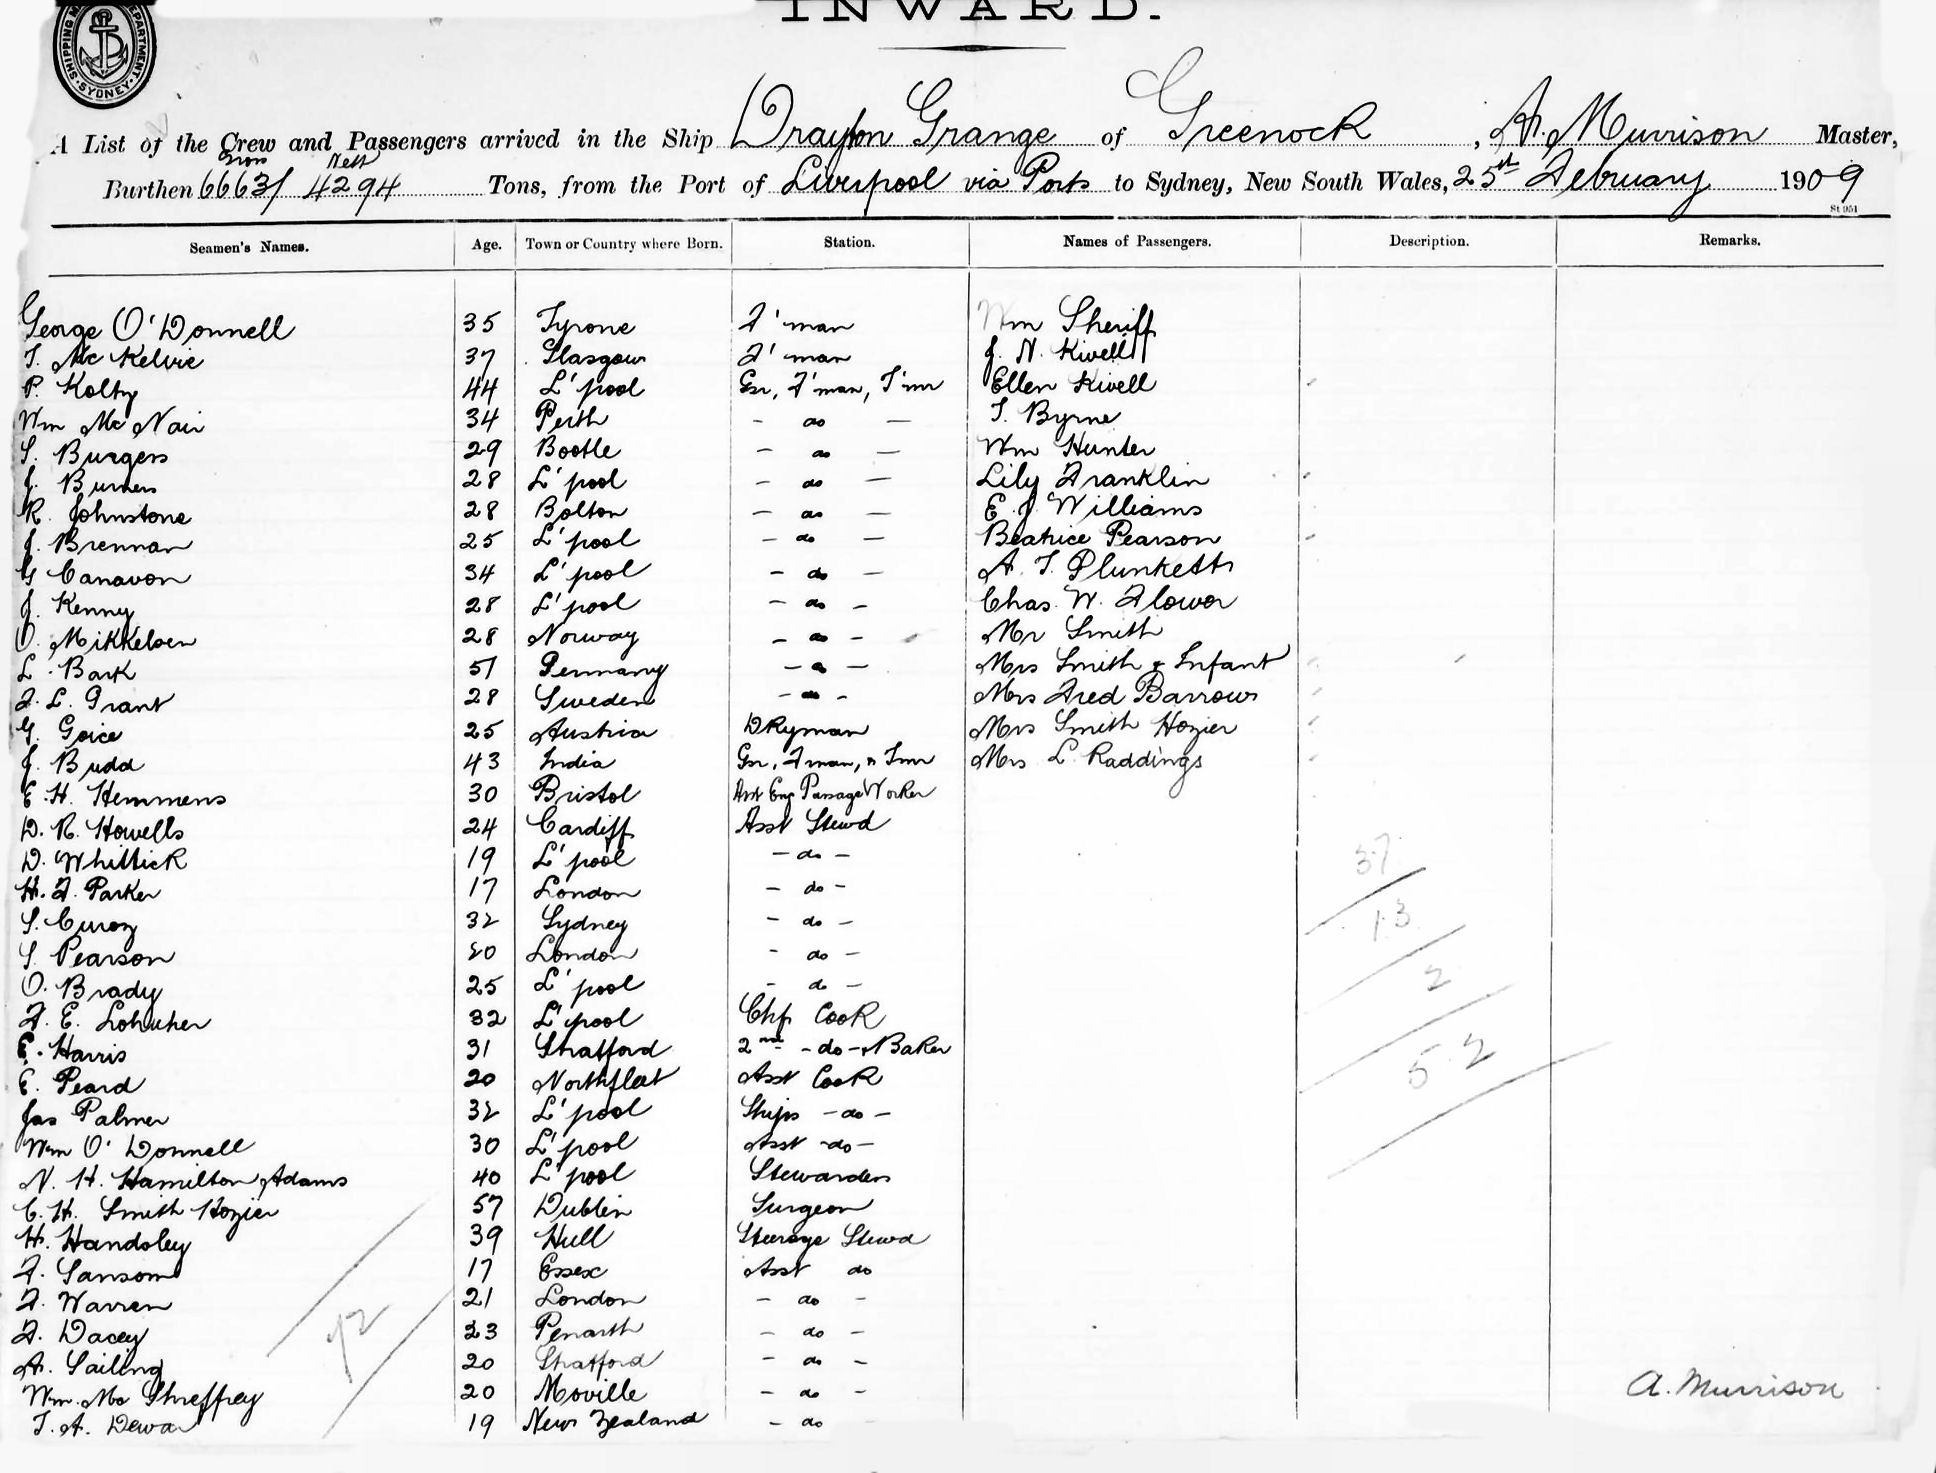 INWARD.
SHIPPING DEPARTMENT. SYDNEY.
A List of the Crew and Passengers arrived in the Ship Drayton Grange of Greenock, A. Murrison Master,
Gross Nett
Burthen 6663/4294 Tons, from the Port of Liverpool via Ports to Sydney, New South Wales, 25th February 1909
St 951
Seamen's Names. Age. Town or Country where Born. Station. Names of Passengers. Description. Remarks.
George O'Donnell 35 Tyrone F'man Wm Sheriff
T. McKelvie 37 Glasgow F'man J. N. Kivell
P. Kolty 44 L'pool Gsr, F'man, T'mr Ellen Kivell
Wm McNair 34 Perth - do - T. Byrne
S. Burgess 29 Bootle - do - Wm Hunter
J. Burners 28 L'pool - do - Lily Franklin
R. Johnstone 28 Bolton - do - E. J. Williams
J. Brennan 25 L'pool - do - Beatrice Pearson
G Canavon 34 L'pool - do - A. T. Plunkett
J. Kenny 28 L'pool - do - Chas. W. Flower
O. Mikkelsen 28 Norway - do - Mr Smith
L. Bark 51 Germany - do - Mrs Smith & Infant
F. L. Grant 28 Sweden - do - Mrs Fred Barrows
G. Goice 25 Austria DKyman Mrs Smith Hozier
J. Budd 43 India Gsr, F'man, & Tmr Mrs L Raddings
E. H. Hemmens 30 Bristol Asst Eng Passage Worker
D. R. Howells 24 Cardiff Asst Stewd
D. Whittick 19 L'pool - do - 37
H. F. Parker 17 London - do -
S. Curoy 32 Sydney - do - 13
S. Pearson 20 London - do -
O. Brady 25 L'pool - do - 2
F. E. 32 L'pool Chf Cook
E. Harris 31 Stratford 2nd - do - & Baker 52
E. Peard 20 Northfleet Asst Cook
Jas Palmer 32 L'pool Ships - do -
Wm O'Donnell 30 L'pool Asst - do -
N. H. Hamilton Adams 40 L'pool Stewardess
C. H. Smith Hozier 57 Dublin Surgeon
H. Handsley 39 Hull Steerage Stewd
F. Sansom 17 Essex Asst do
F. Warren 21 London - do -
F. Dacey 23 Penarth - do -
A. Sailing 20 Stratford - do -
Wm. Mc Shreffrey 20 Moville - do - A. Murrison
T. A. Dewar 19 New Zealand - do